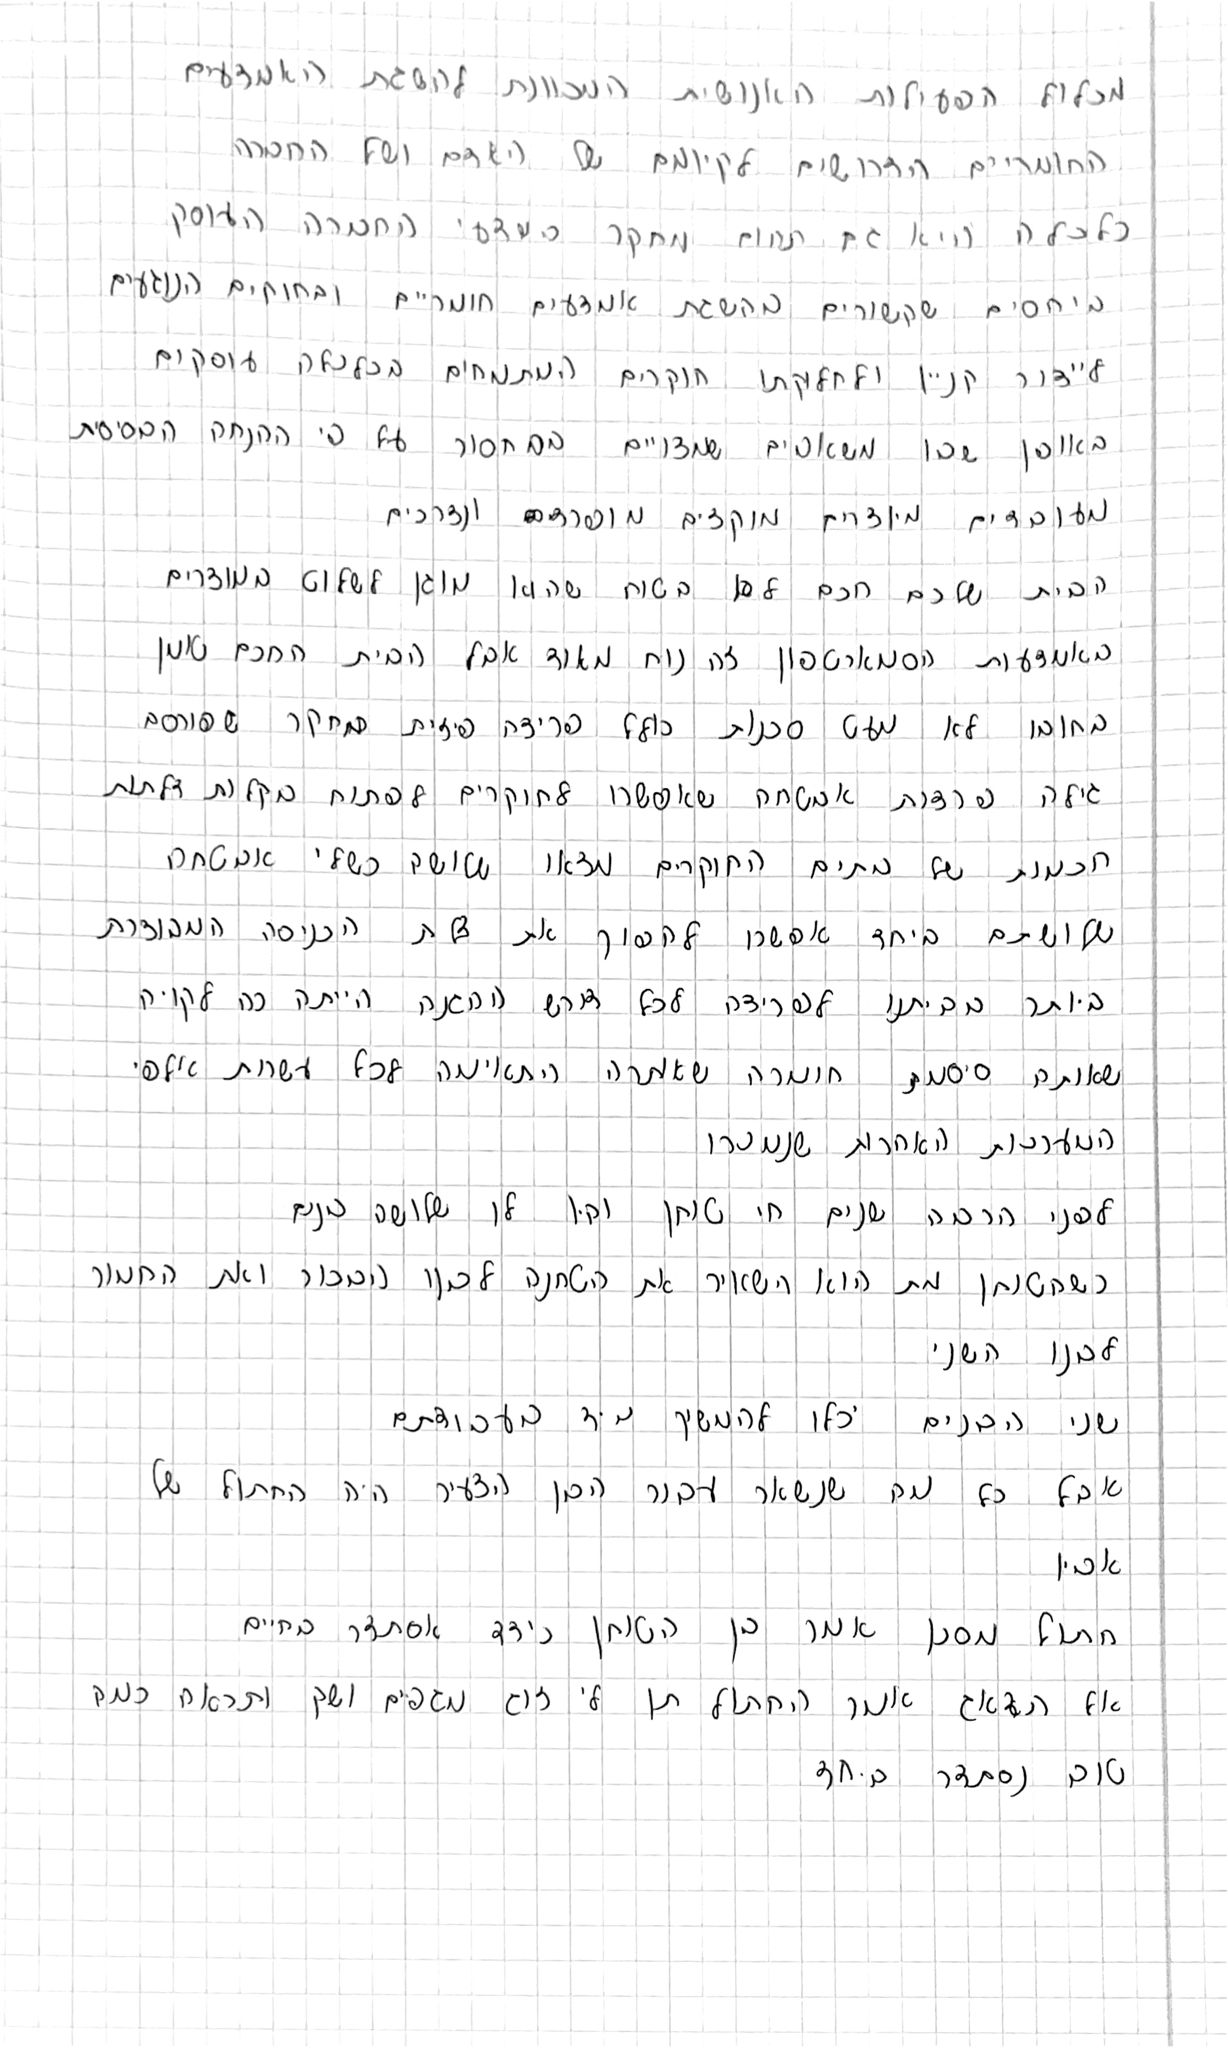 מכלול הפעילות האנושית המכוונת להשגת האמצעים
החומריים הדרושים לקיומם של האדם ושל החברה
כלכלה היא גם תחום מחקר במדעי החברה העוסק
ביחסים שקשורים בהשגת אמצעים חומריים ובחוקים הנוגעים
לייצור קניין ולחלוקתו חוקרים המתמחים בכלכלה עוסקים
באופן שבו משאבים שמצויים במחסור על פי ההנחה הבסיסית
מעובדים מיוצרים מוקצים מופרדים ונצרכים
הבית שלכם חכם לא בטוח שהוא מוגן לשלוט במוצרים
באמצעות הסמארטפון זה נוח מאוד אבל הבית החכם טומן
בחובו לא מעט סכנות כולל פריצה פיזית מחקר שפורסם
גילה פרצות אבטחה שאפשרו לחוקרים לפתוח בקלות דלתות
חכמות של בתים החוקרים מצאו שלושה כשלי אבטחה
שלושתם ביחד אפשרו להפוך את דלת הכניסה המבוצרת
ביותר בביתנו לפריצה לכל דורש ההגנה הייתה כה לקויה
שאותה סיסמת חומרה שאותרה התאימה לכל עשרות אלפי
המערכות האחרות שנמכרו
לפני הרבה שנים חי טוחן והיו לו שלושה בנים
כשהטוחן מת הוא השאיר את הטחנה לבנו הבכור ואת החמור
לבנו השני
שני הבנים יכלו להמשיך מיד בעבודתם
אבל כל מה שנשאר עבור הבן הצעיר היה החתול של
אביו
חתול מסכן אמר בן הטוחן כיצד אסתדר בחיים
אל תדאג אמר החתול תן לי זוג מגפים ושק ותראה כמה
טוב נסתדר ביחד